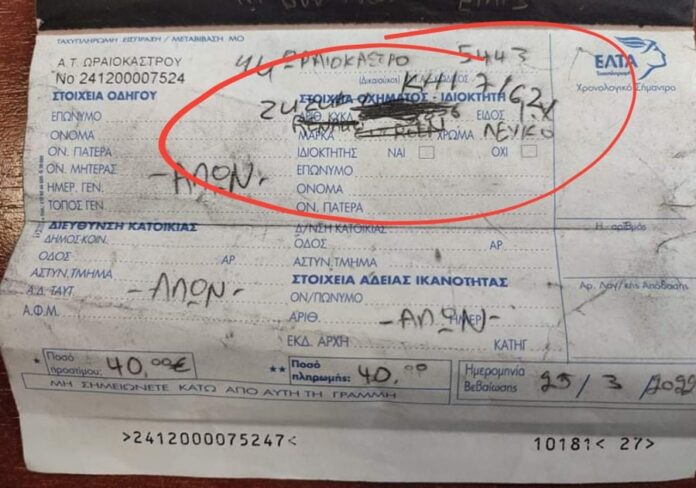 ΤΑΧΥΠΛΗΡΩΜΗ ΕΙΣΠΡΑΞΗ / ΜΕΤΑΒΙΒΑΣΗ ΜΟ
44 ΩΡΑΙΟΚΑΣΤΡΟ 5443
Α.Τ. ΩΡΑΙΟΚΑΣΤΡΟΥ
No 241200007524
ΕΛΤΑ
Χρονολογικό Σήμαντρο
ΣΤΟΙΧΕΙΑ ΟΔΗΓΟΥ
ΣΤΟΙΧΕΙΑ ΟΧΗΜΑΤΟΣ - ΙΔΙΟΚΤΗΤΗ
ΕΠΩΝΥΜΟ
ΑΡΙΘ. ΚΥΚΛ. ΕΙΔΟΣ Ι.Χ
ΟΝΟΜΑ
ΜΑΡΚΑ ΧΡΩΜΑ ΛΕΥΚΟ
ΟΝ. ΠΑΤΕΡΑ
ΙΔΙΟΚΤΗΤΗΣ ΝΑΙ ΟΧΙ
ΟΝ. ΜΗΤΕΡΑΣ
-ΑΠΩΝ-
ΕΠΩΝΥΜΟ
ΗΜΕΡ. ΓΕΝ.
ΟΝΟΜΑ
ΤΟΠΟΣ ΓΕΝ.
ΟΝ. ΠΑΤΕΡΑ
ΔΙΕΥΘΥΝΣΗ ΚΑΤΟΙΚΙΑΣ
Δ/ΝΣΗ ΚΑΤΟΙΚΙΑΣ
Η αριθμός
ΔΗΜΟΣ-ΚΟΙΝ.
ΟΔΟΣ ΑΡ.
ΟΔΟΣ ΑΡ.
ΑΣΤΥΝ.ΤΜΗΜΑ
ΑΣΤΥΝ.ΤΜΗΜΑ
ΣΤΟΙΧΕΙΑ ΑΔΕΙΑΣ ΙΚΑΝΟΤΗΤΑΣ
Αρ. Λογ/κής Απόδοσης
Α.Δ. ΤΑΥΤ -ΑΠΩΝ-
ΟΝ/ΠΩΝΥΜΟ
Α.Φ.Μ.
ΑΡΙΘ. -ΑΠΩΝ- ΗΜΕΡ.
ΕΚΔ. ΑΡΧΗ ΚΑΤΗΓ
* Ποσό προστίμου: 40,00€
** Ποσό πληρωμής: 40,00
Ημερομηνία Βεβαίωσης 25 / 3 /2022
ΜΗ ΣΗΜΕΙΩΝΕΤΕ ΚΑΤΩ ΑΠΟ ΑΥΤΗ ΤΗ ΓΡΑΜΜΗ
>2412000075247< 10181< 27>